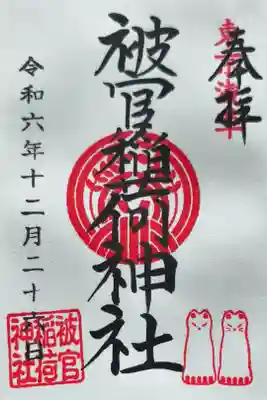 奉拝
被官稲荷神社
令和六年十二月二十六日
被官
稲荷
神社